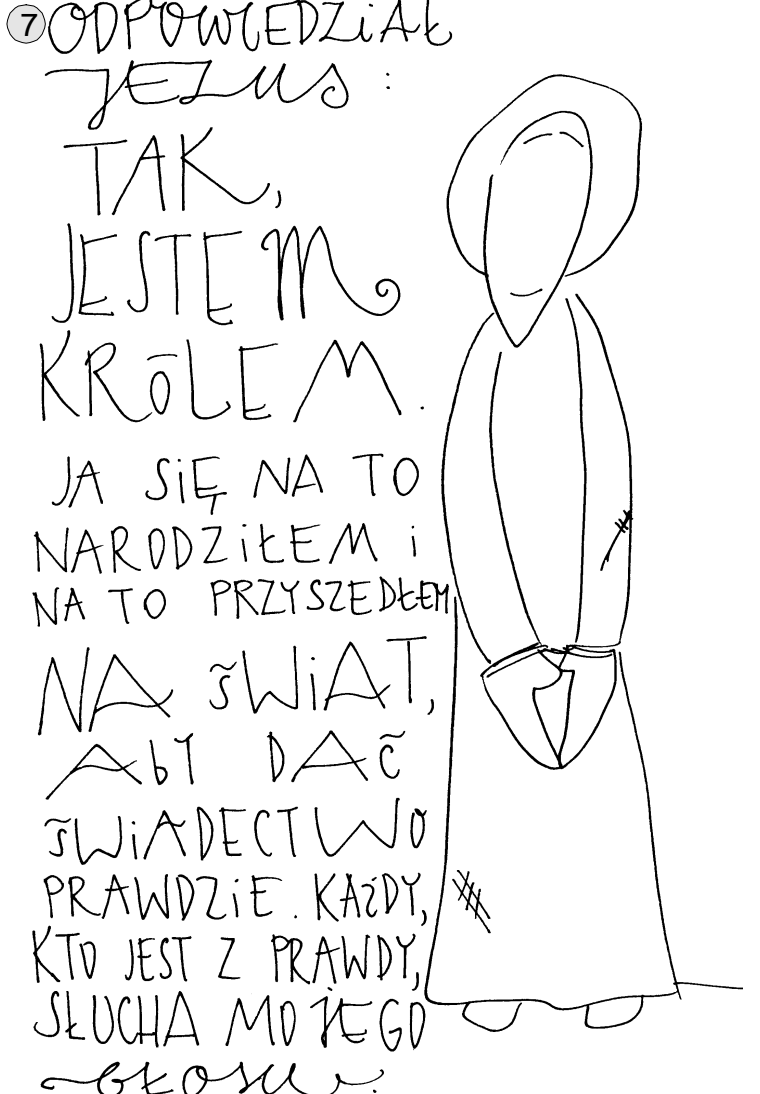 7 ODPOWIEDZiAŁ
JEZUS :
TAK,
JESTEM
KRÓLEM.
JA SiĘ NA TO
NARODZiŁEM i
NA TO PRZYSZEDŁEM
NA ŚWiAT,
AbY DAĆ
ŚWiADECTWO
PRAWDZiE. KAŻDY,
KTO JEST Z PRAWDY,
SŁUCHA MOJEGO
GŁOSU.